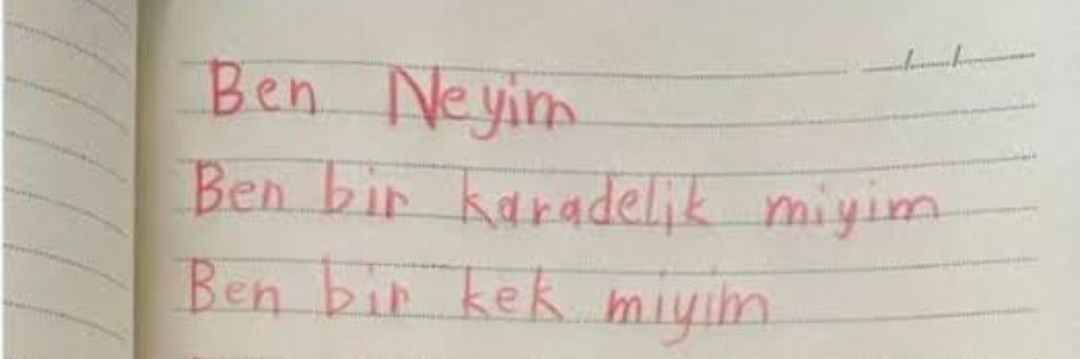 Ben Neyim
Ben bir karadelik miyim
Ben bir kek miyim